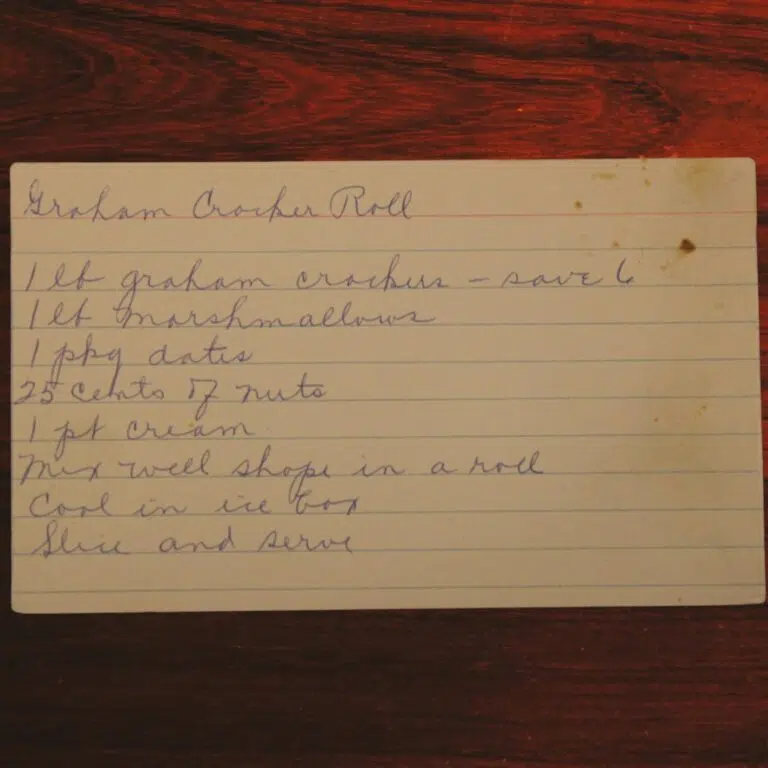 Graham Cracker Roll
1 lb graham crackers - save 6
1 lb marshmallows
1 pkg dates
25 cents of nuts
1 pt cream
Mix well shape in a roll
Cool in ice box
Slice and serve